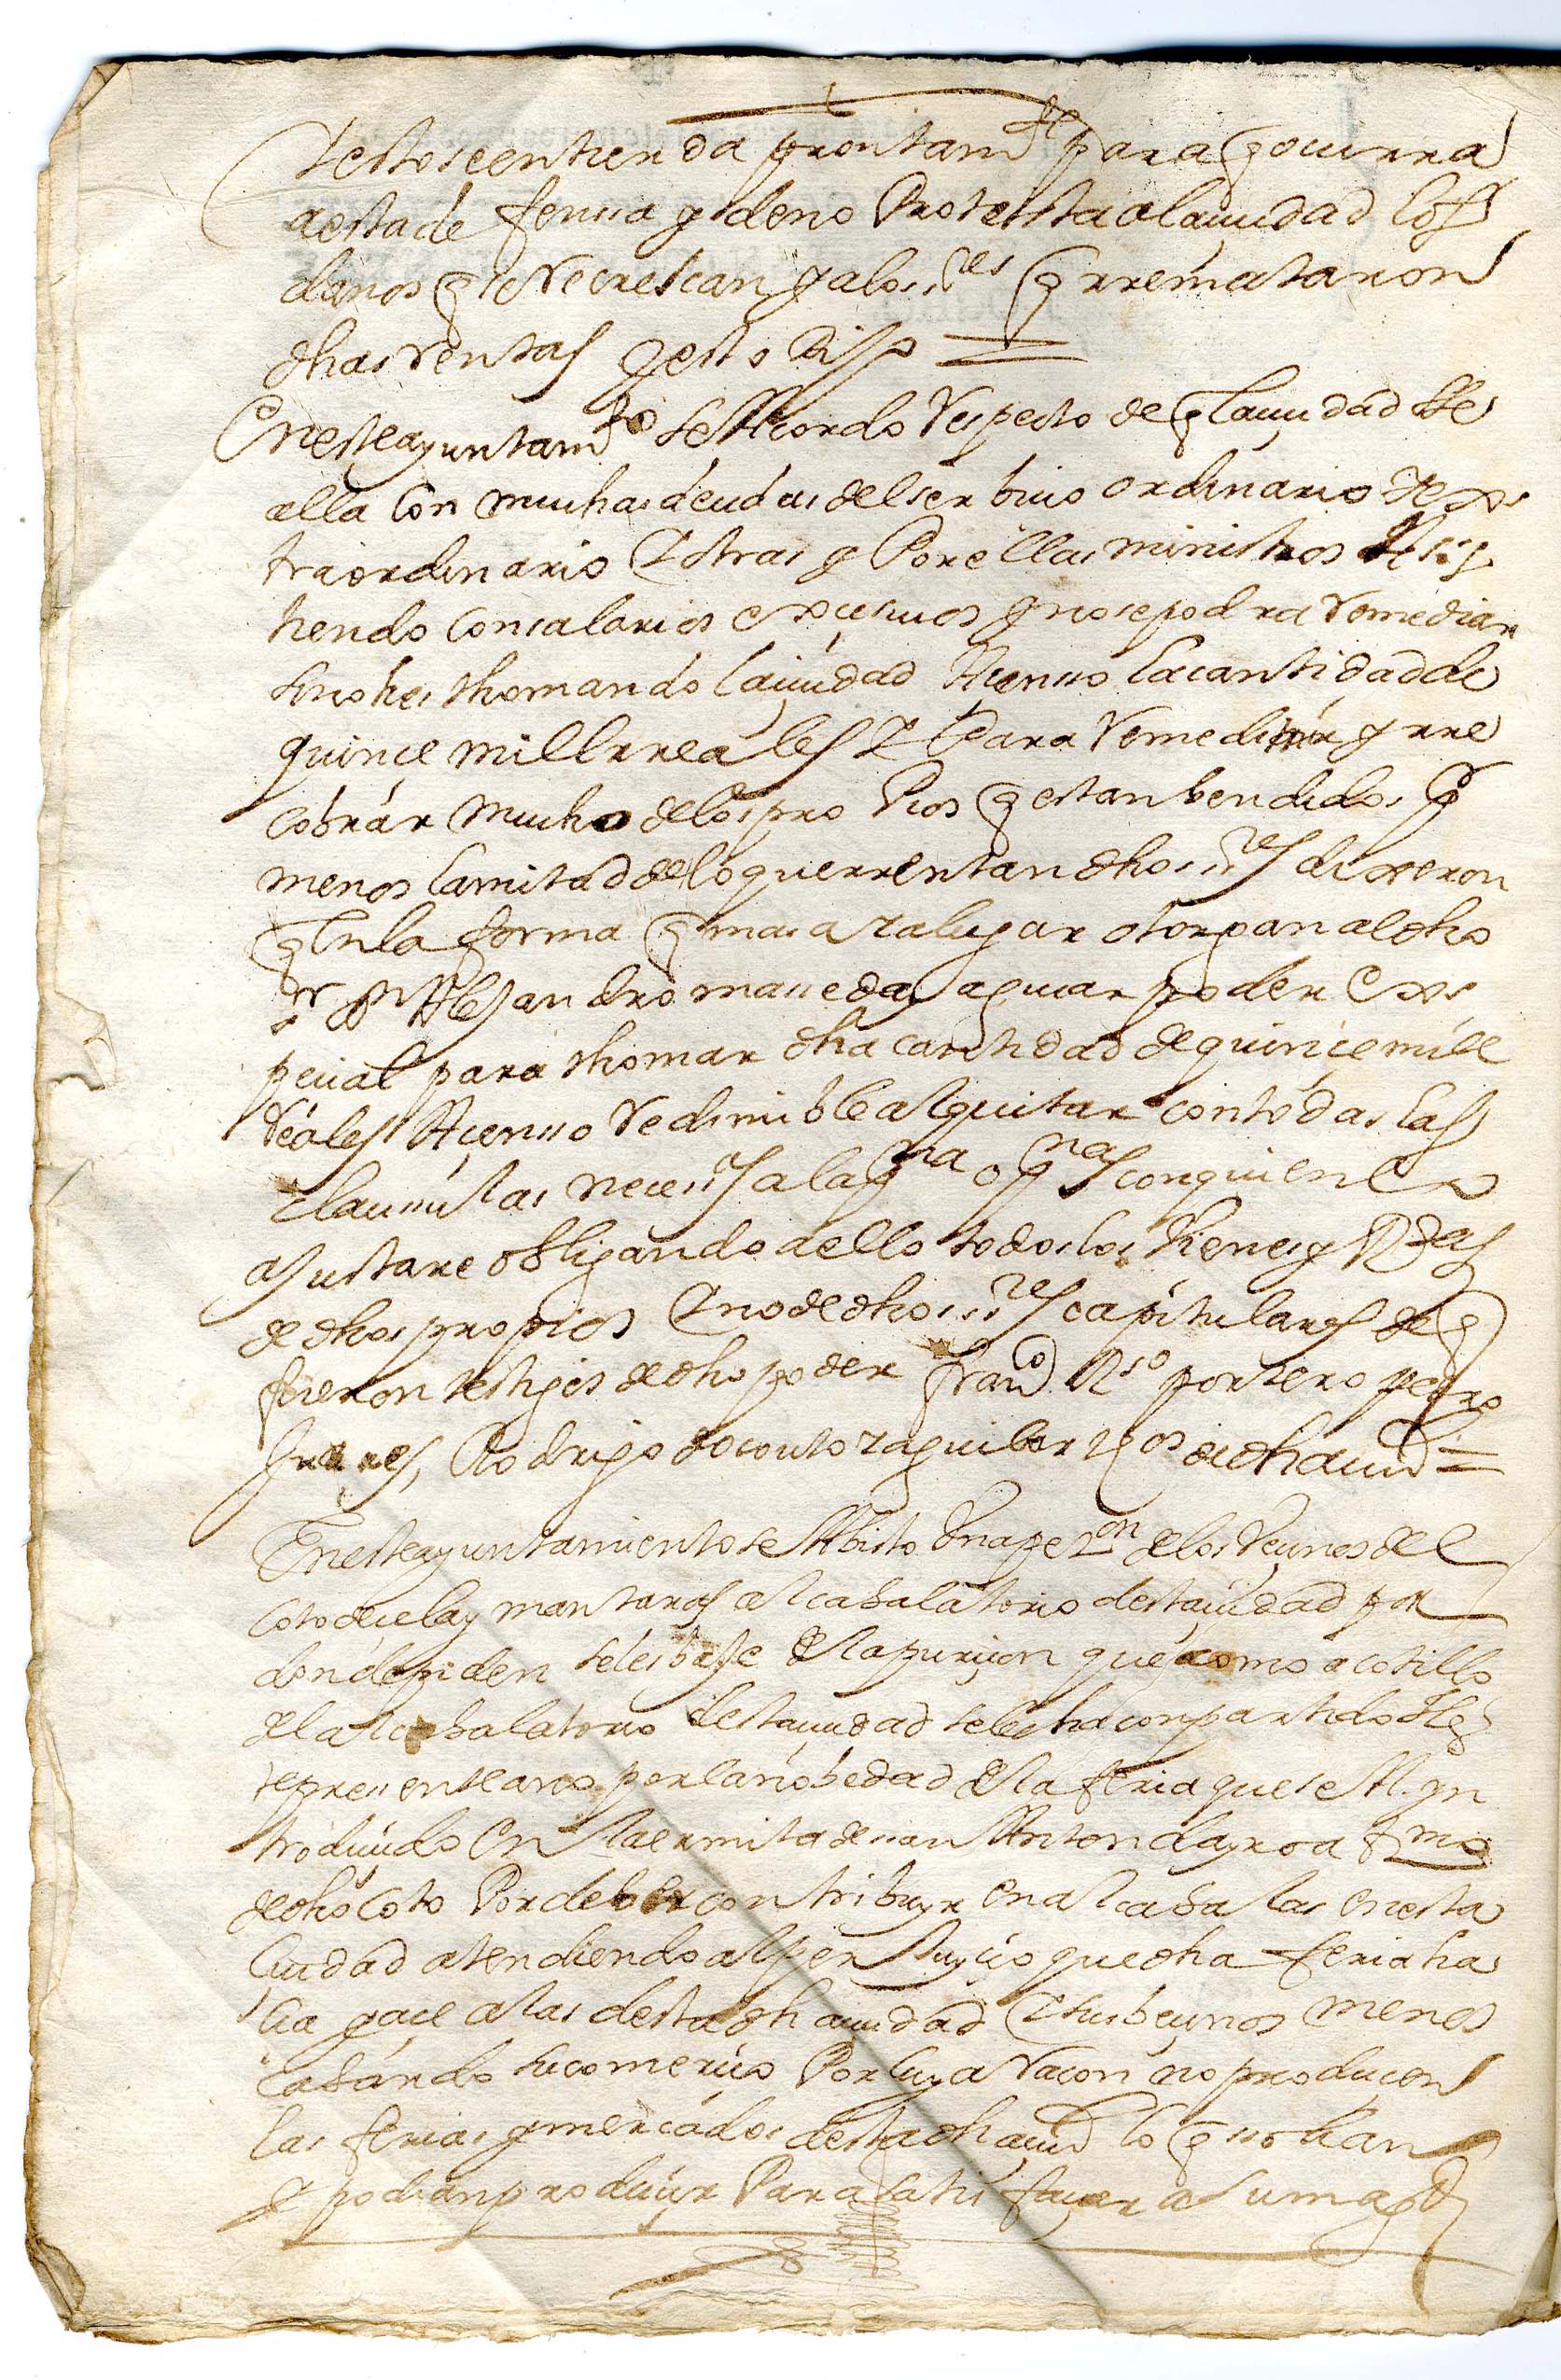 Y esto se entienda prontamte para q ocurra
a esta defenssa y de no Protesta a la ciudad los
danos q se le Recrescan y a los ssres q rremataron
dhas Rentas y esto Dijo
En este ayuntamto se Acordo Respecto de q la ciudad se
alla Con muchas deudas del serbicio ordinario Y ex
traordinario Y otras y Por ellas ministros
hendo Con salarios excesivos y no se podra Remediar
sino hes thomando la ciudad A censso la cantidad de
quince mill rreales Y Para Remediar y rre
cobrar mucho de los pro Pios q estan bendidos Por
menos la mitad de lo que rrentan dhos ssres dixeron
q En la forma q mas aya lugar otorgan al dho
sr Dn Alejandro masseda y aguiar poder ex
pecial para thomar dha cantidad de quince mill
Reales A censso Redimible al quitar con todas las
claussulas necessas a la psna o psnas con quien lo
ajustare obligando a ello todos los Vienes y Rtas
de dhos propios Y no de dhos ssres capitulares de q
fueron testigos de dho poder Franco Rso portero pedro
Rodrigo do couto y aguilar vos de dha ciud
En este ayuntamiento se A bisto Una peton de los Vecinos del
Coto de cela y mantaras alcabalatorio desta ciudad por
donde piden se les baje de la purcion que como a cotillo
del alcabalatorio desta ciudad se les ha conpartido
representeano por la nobedad de la feria que se A yn
troducido En la ermita de san Anton da yroa trmo
de dho Coto Por deber contribuyr en alcabalas en esta
Ciudad atendiendo al perjuycio que dha feria ha
cia y ace a las desta dha ciudad Y sus becinos menos
cabando su comercio Por cuya Racon no producen
las ferias y mercados desta dha ciud lo q so han
y podian producir Para satisfacer a su magd